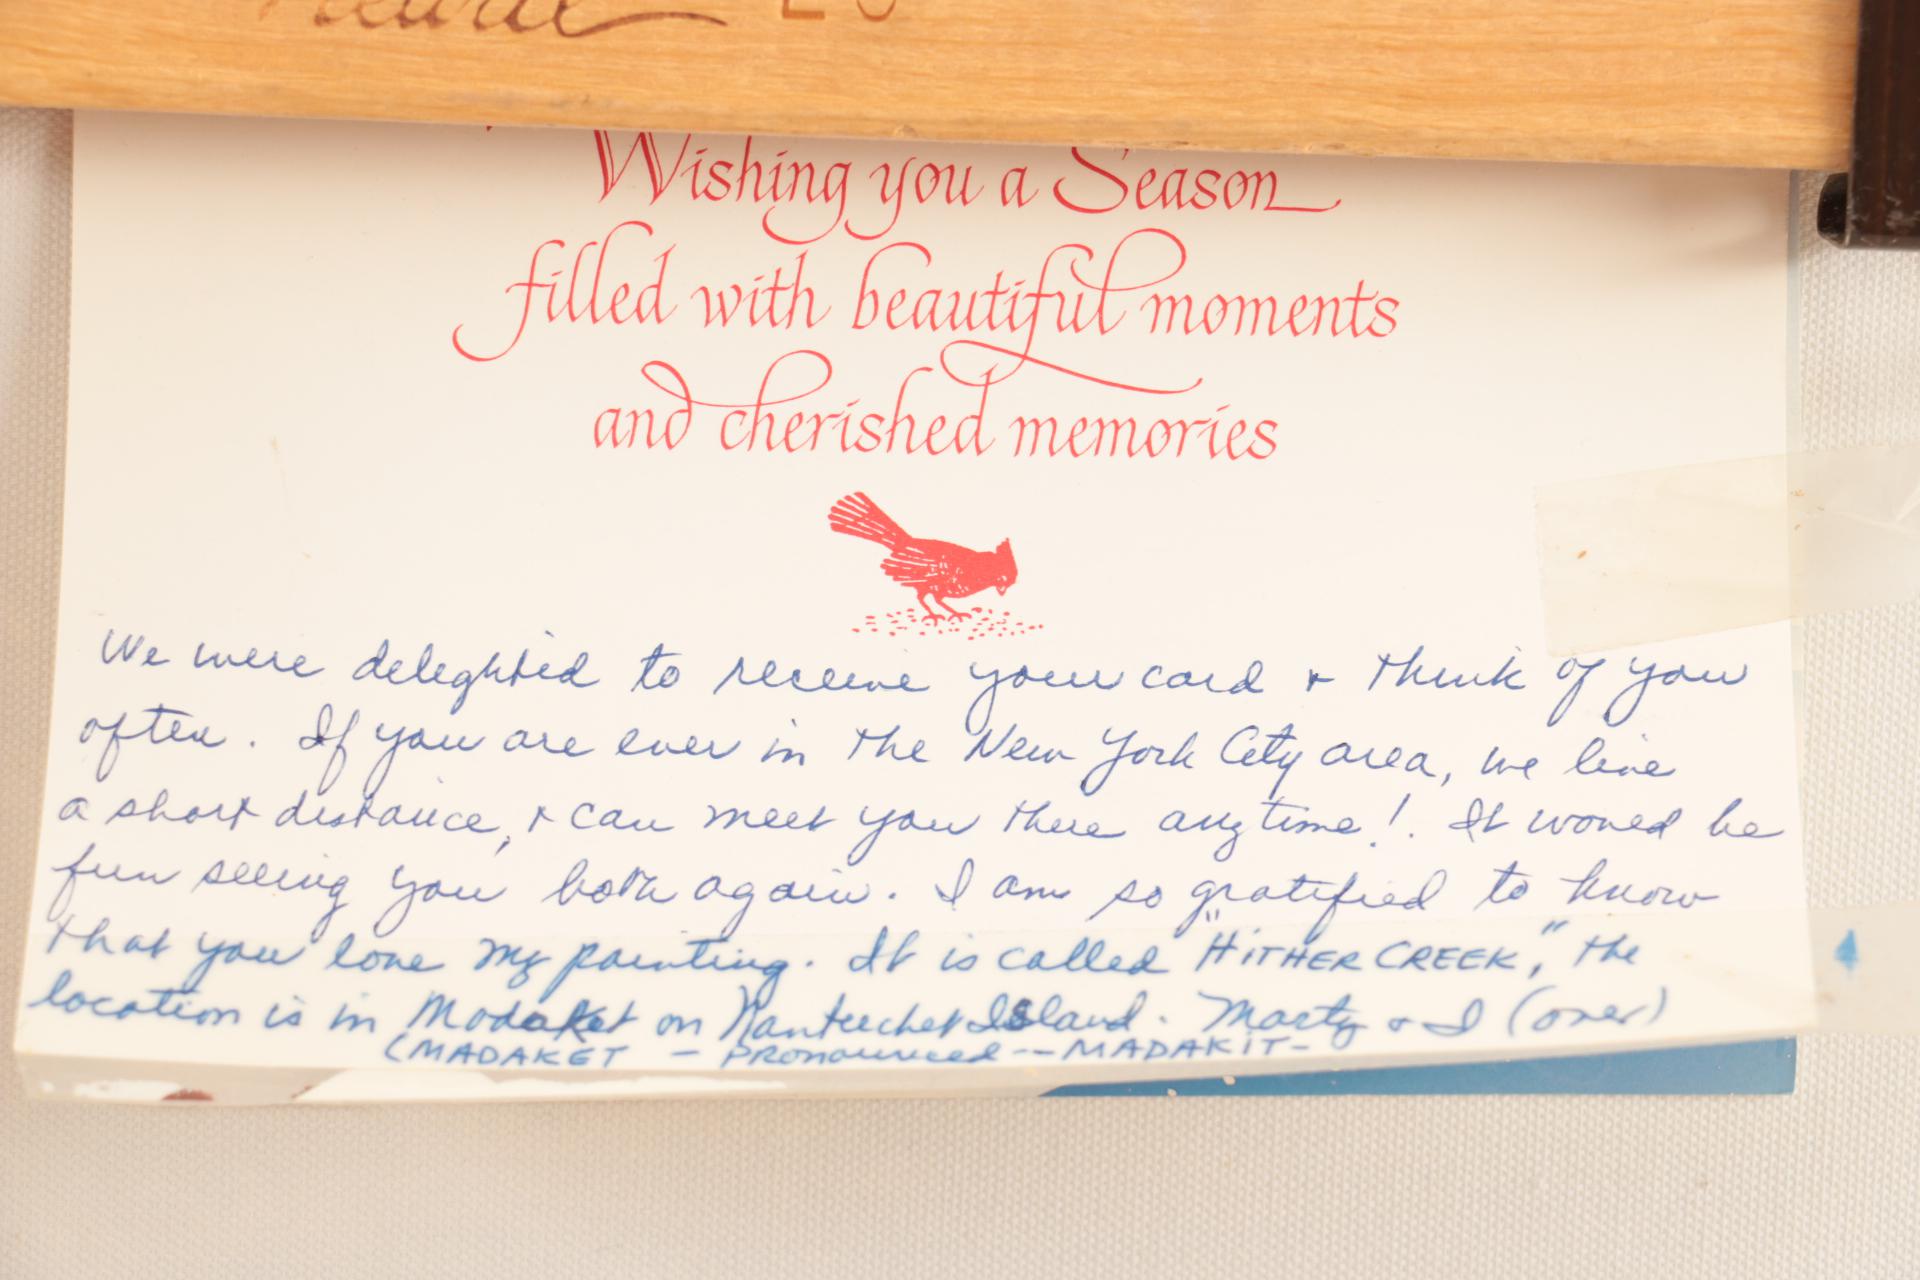 Wishing you a Season
filled with beautiful moments
and cherished memories
We were delighted to receive your card + think of you
often. If you are ever in the New York City area, we live
a short distance, + can meet you there anytime! It would be
fun seeing you both again. I am so gratified to know
that you love my painting. It is called "HITHER CREEK," the
location is in Madaket on Nantucket Island. Marty + I (over)
(MADAKET - PRONOUNCED -- MADAKIT-